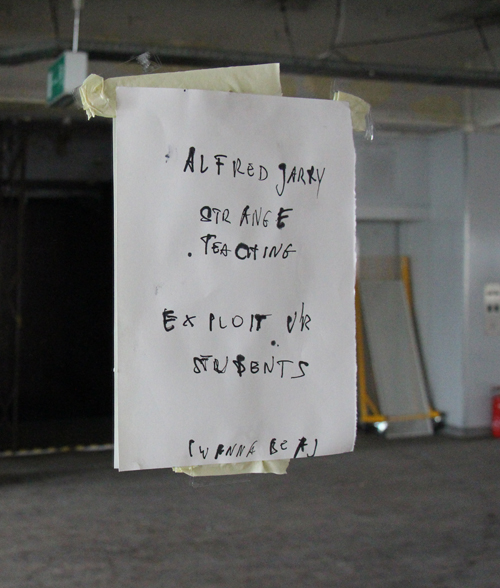 ALFRED JARRY
STRANGE
TEACHING
EXPLOIT UR
STUDENTS
(WANNA BE A)